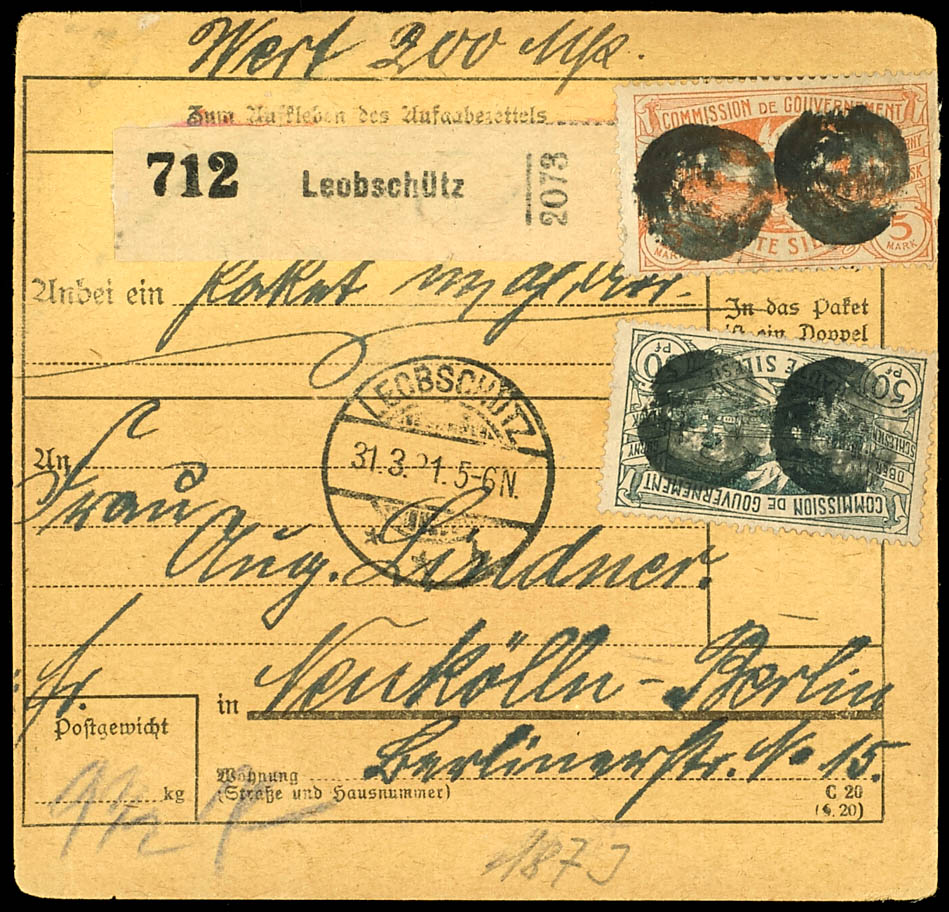 Wert 200 Mk.
Zum Aufkleben des Aufgabezettels
712 Leobschütz 2073
COMMISSION DE GOUVERNEMENT
5
MARK
Anbei ein Paket
In das Paket
ist ein Doppel
LEOBSCHÜTZ
31.3.21.5-6N.
50 Pf
50 Pf
OBER SCHLESIEN
COMMISSION DE GOUVERNEMENT
An
Frau
Aug. Lindner.
fr.
in Neukölln-Berlin
Postgewicht
kg
Berlinerstr. No 15.
Wohnung
(Straße und Hausnummer)
C 20
(4.20)